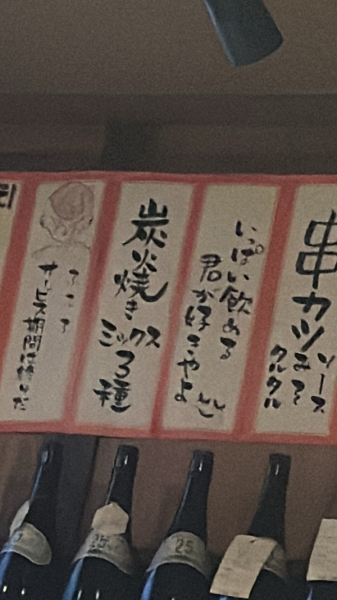 串カツ
ソース
クルクル
いっぱい飲める
君が好きやよ
炭火焼き
ミックス
3種
サービス期間は終りだ
25
25